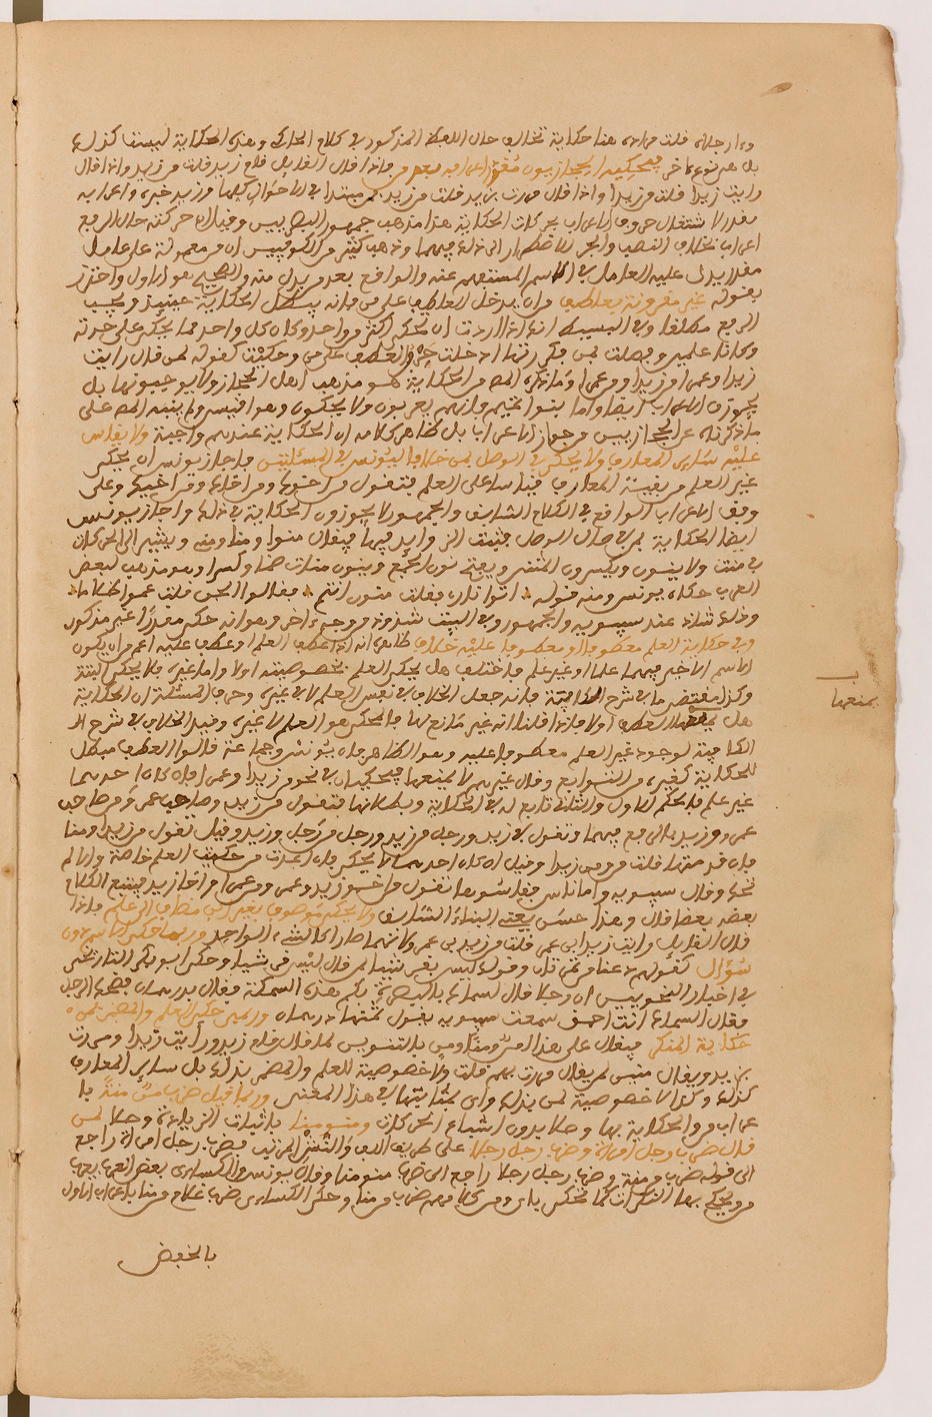 وا رجلاه قلت من اه هنا حكاية تخالف حال اللفظ المذكور في كلام الحاكي وهذه الحكاية ليست كذلك
بل هي نوع اخر فيحكيه الحجازيون مقدرا اعرابه بعد من فاذا قال القايل قام زيد قلت من زيد واذا قال
رايت زيدا قلت من زيدا واذا قال مررت بزيد قلت من زيد فمن مبتدا في الاحوال كلها وزيد خبره واعرابه
مقدر لاشتغال حروف الاعراب بحركات الحكاية هذا مذهب جمهور البصريين وقيل ان حركته حال الرفع
اعراب بخلاف النصب والجر للاضطرار الى ذلك فيهما وذهب كثير من الكوفيين ان من معمولة على عامل
مقدر يدل عليه العامل في الاسم المستفهم عنه والواقع بعد من بدل منه والصحيح هو الاول واحترز
بقوله غير مقرونة بعاطف من ان يدخل العاطف على من فانه يبطل الحكاية حينئذ ويجب
الرفع مطلقا وفي البسيط انه اذا اردت ان تحكي اكثر من واحد وكان كل واحد مما يحكى على حدته
وكانا علمين وفصلت بمن فكررتها ادخلت حرف العطف على من وحكيت كقوله لمن قال رايت
زيدا وعمرا من زيدا ومن عمرا وما ذكره المص من الحكاية هو مذهب اهل الحجاز ولا يوجبونها بل
يجوزون الاعراب ايضا واما بنوا تميم فانهم يعربون ولا يحكون وهو اقيس ولم ينبه المص على
ما ذكرناه عن الحجازيين من جواز الاعراب بل ظاهر كلامه ان الحكاية عندهم واجبة ولا يقاس
عليه ساير المعارف ولا يحكى في الوصل بمن خلافا ليونس في المسئلتين فاجاز يونس ان يحكى
غير العلم من بقية المعارف قياسا على العلم فتقول من اخوك ومن اخاك ومن اخيك وعلى
وفق الاعراب الواقع في الكلام السابق والجمهور لا يجوزون الحكاية في ذلك واجاز يونس
ايضا الحكاية بمن في حال الوصل فتثبت الزوايد فيها فيقال منوا ومنا ومني ويشير الى الحركات
في منت ولا ينون ويكسر نون المثنى ويفتح نون الجمع وينون منات ضما وكسرا وهو مذهب لبعض
العرب حكاه يونس ومنه قوله اتوا ناري فقلت منون انتم فقالوا الجن قلت عموا ظلاما
وذلك شاذ عند سيبويه والجمهور وفي البيت شذوذ من وجه اخر وهو انه حكى مقدرا غير مذكور
وفي حكاية العلم معطوفا او معطوفا عليه خلاف ظاهره انه اذا عطف العلم او عطف عليه اعم من ان يكون
الاسم الاخر فيهما علما او غير علم فاختلف هل يحكى العلم بخصوصيته اولا واما غيره فلا يحكى البتة
وكذا مقتضى ما في شرح الكافية فانه جعل الخلاف في نفس العلم لا في غيره وحرف المسئلة ان الحكاية
هل يبطلها العطف اولا فاذا قلنا انه غير مانع لها فالمحكي هو العلم لا غيره وقيد الخلاف في شرح الـ
الكافية لوجود غير العلم معطوفا عليه وهو الظاهر فان يونس وجماعة قالوا العطف مبطل
للحكاية كغيره من التوابع وقال غيرهم لا يمنعها فيحكيان في نحو زيدا وعمرا فان كان احدهما
غير علم فالحكم للاول والثاني تابع له في الحكاية وبطلانها فتقول من زيد وصاحب عمرو ومن صاحب
عمرو وزيد بالرفع فيهما وتقول لا زيد ورجل من زيد ورجل من رجل وزيد وقيل تقول من زيدا ومنا
فان قدمتها قلت من ومن زيدا وقيل ان كان احدهما لا يحكى فان اعدت من حكيت العلم خاصة والا لم
تحك وقال سيبويه واما ناس فقاسوها تقول من اخو زيد وعمرو ومن عمرا واخا زيد فيتبع الكلام
بعضه بعضا قال وهذا حسن يعني البناء السابق ولا يحكى موصوف بغير ابن مضاف الى علم فاذا
قال القايل رايت زيدا بن عمرو قلت من زيد بن عمرو لانهما صارا كالشيء الواحد وربما حكى الاسم دون
سؤال كقولهم دعنا من تمرتان وقوله ليس بقرشيا لمن قال اليس قرشيا وحكى ابو بكر التاريخي
في اخبار النحويين ان رجلا قال لسماك بالبصرة بكم هذه السمكة فقال بدرهمان فضحك الرجل
فقال السماك انت احمق سمعت سيبويه يقول ثمنها درهمان وربما حكى العلم والمضمر بمن
حكاية المنكر فيقال على هذا من ومنا ومن بالتنوين لمن قال قام زيد ورأيت زيدا ومررت
بزيد ويقال منين لمن يقال مررت بهم قلت ولا خصوصية للعلم والمضمر بذلك بل ساير المعارف
كذلك وكذا لا خصوصية لمن بذلك واي بمثابتها في هذا المعنى وربما قيل ضرب من منا با
عراب من والحكاية بها وصلا بدون اشباع الحركات ومنو منا باثبات الزيادة وصلا لمن
قال ضرب رجل امراة وضرب رجل رجلا على طريق اللف والنشر المرتب فضرب رجل امراة راجع
الى قوله ضرب من منة وضرب رجل رجلا راجع الى ضرب منو منا وقال يونس والكسائي بعض العرب يعرب
من ويحكي بها النكرات كما تحكي باي ومن كلامهم ضرب من منا وحكى الكسائي ضرب غلام من منا باعراب الاول
بالخفض
يمنعها